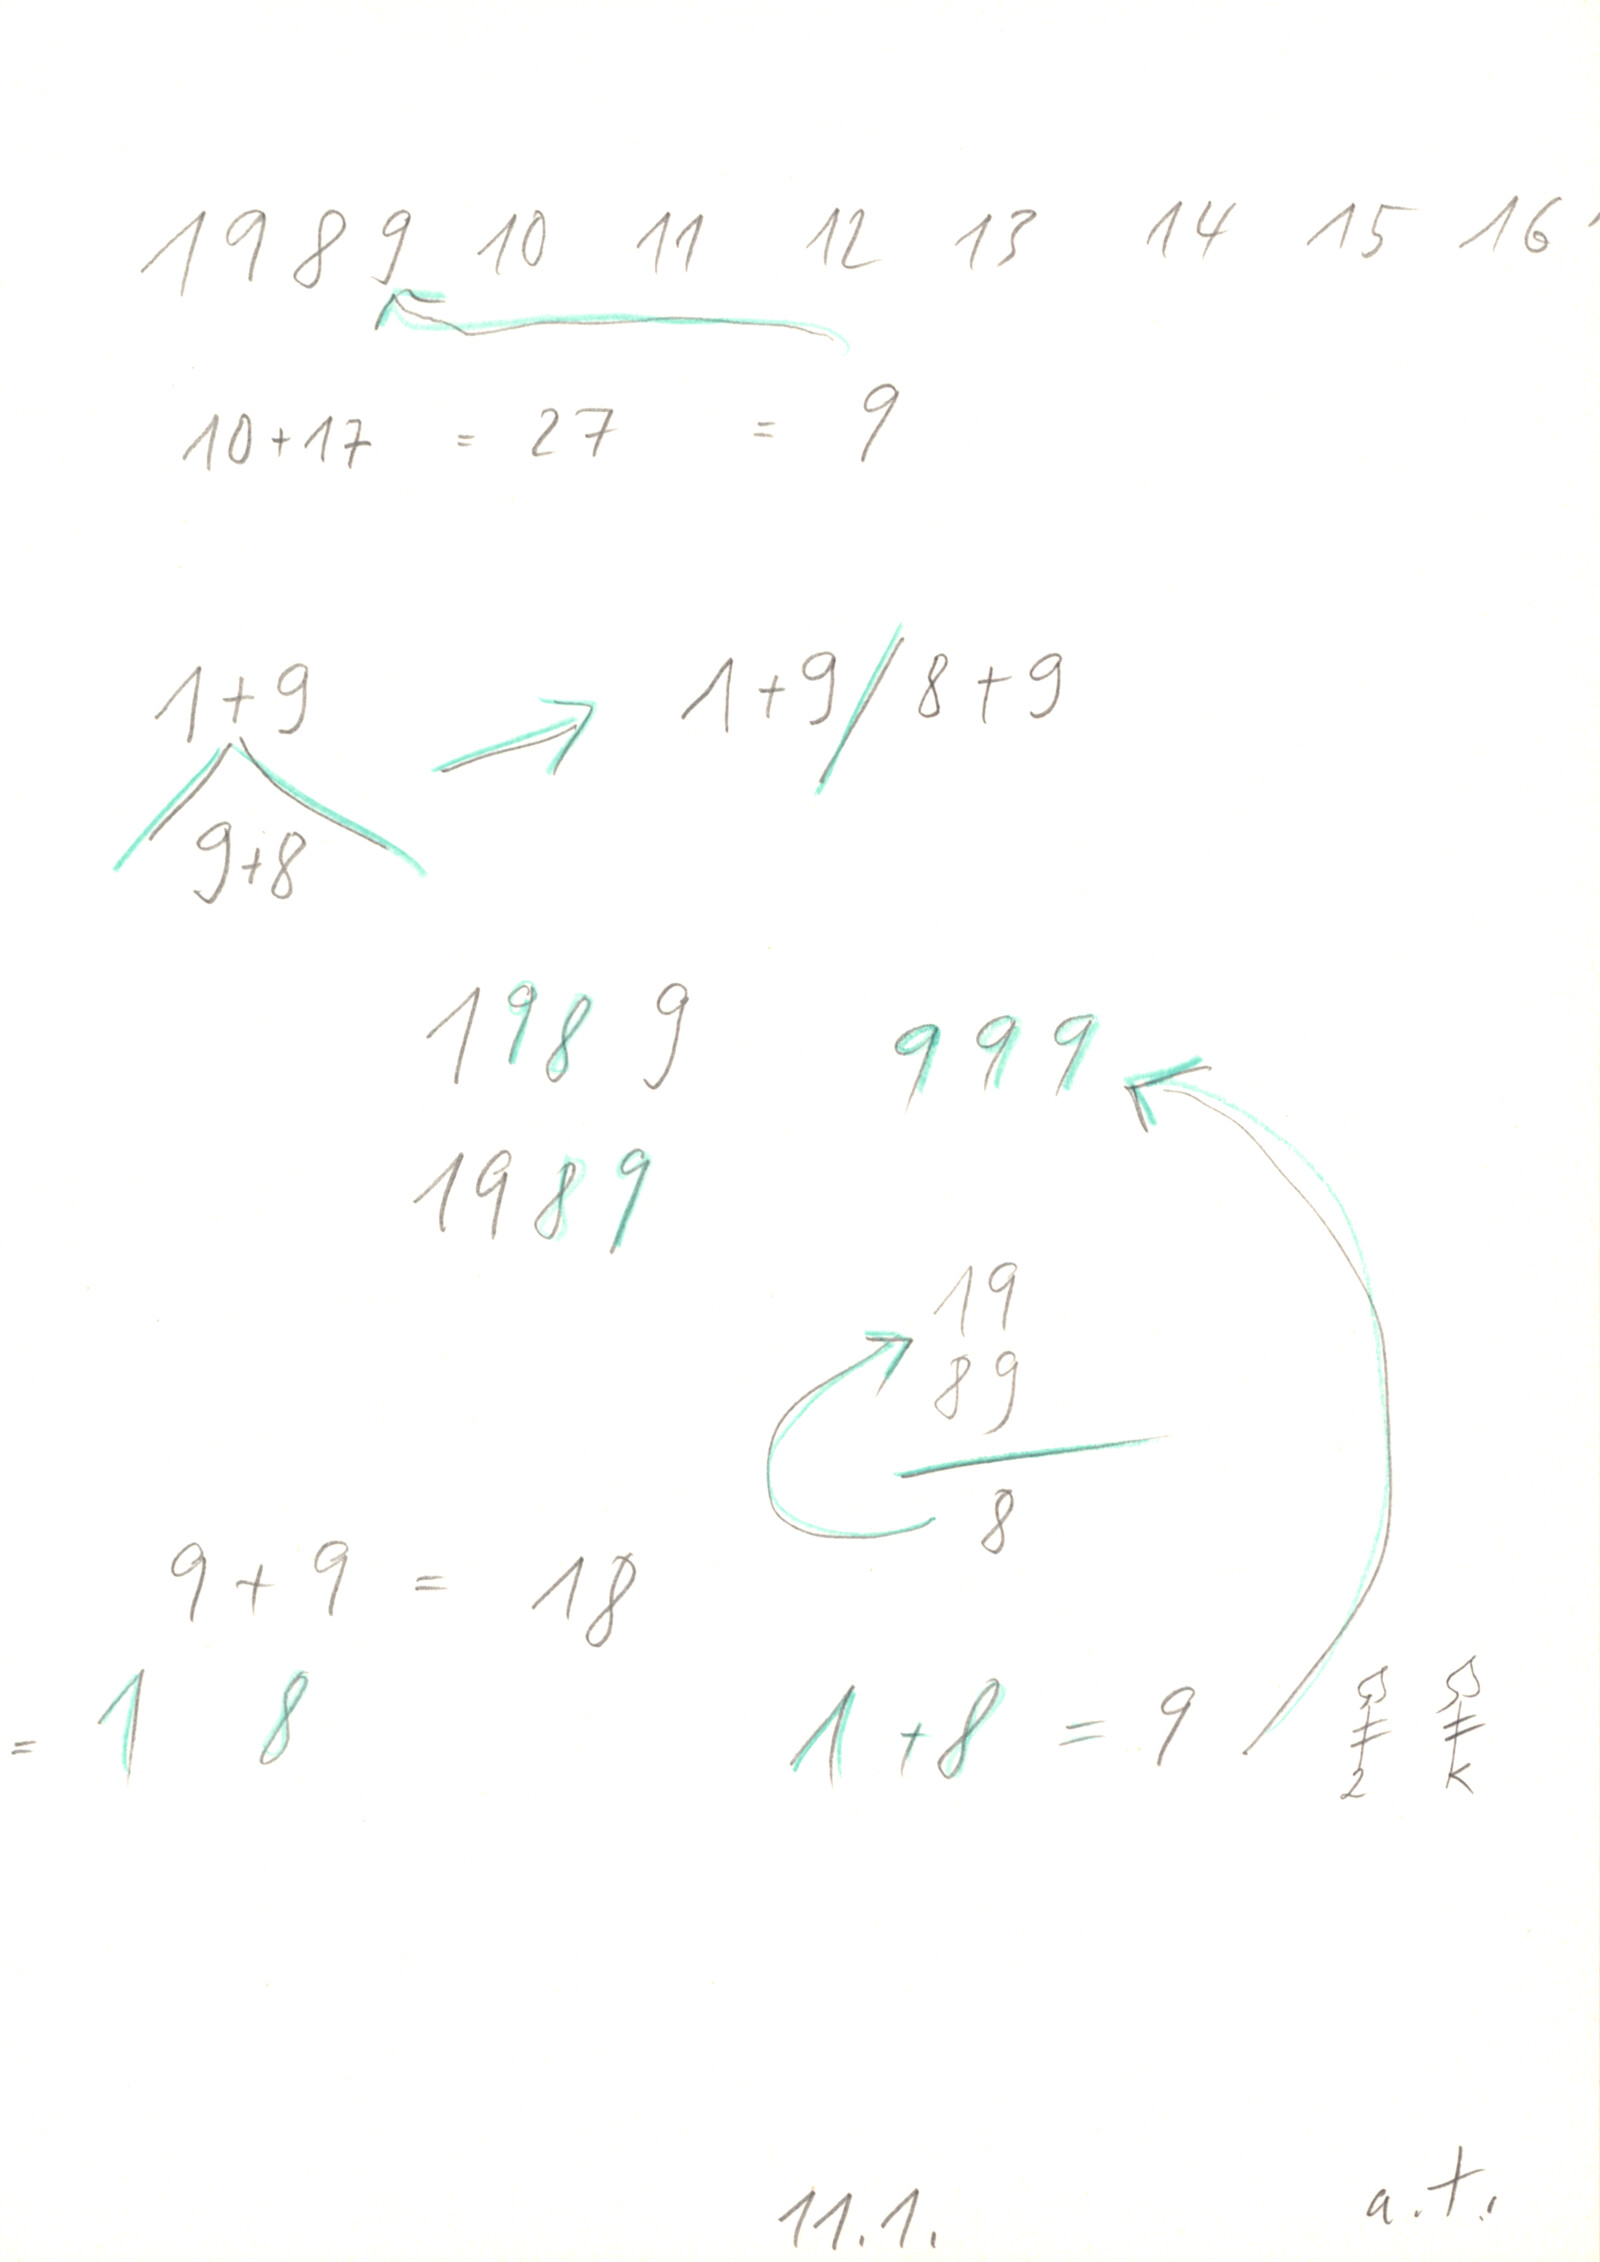 1989 10 11 12 13 14 15 16
10+17 = 27 = 9
1+9
1+9/8+9
9+8
1989
999
1989
19
89
8
9+9 = 18
= 1 8
1+8 = 9
2 K
11.1.
a.t.